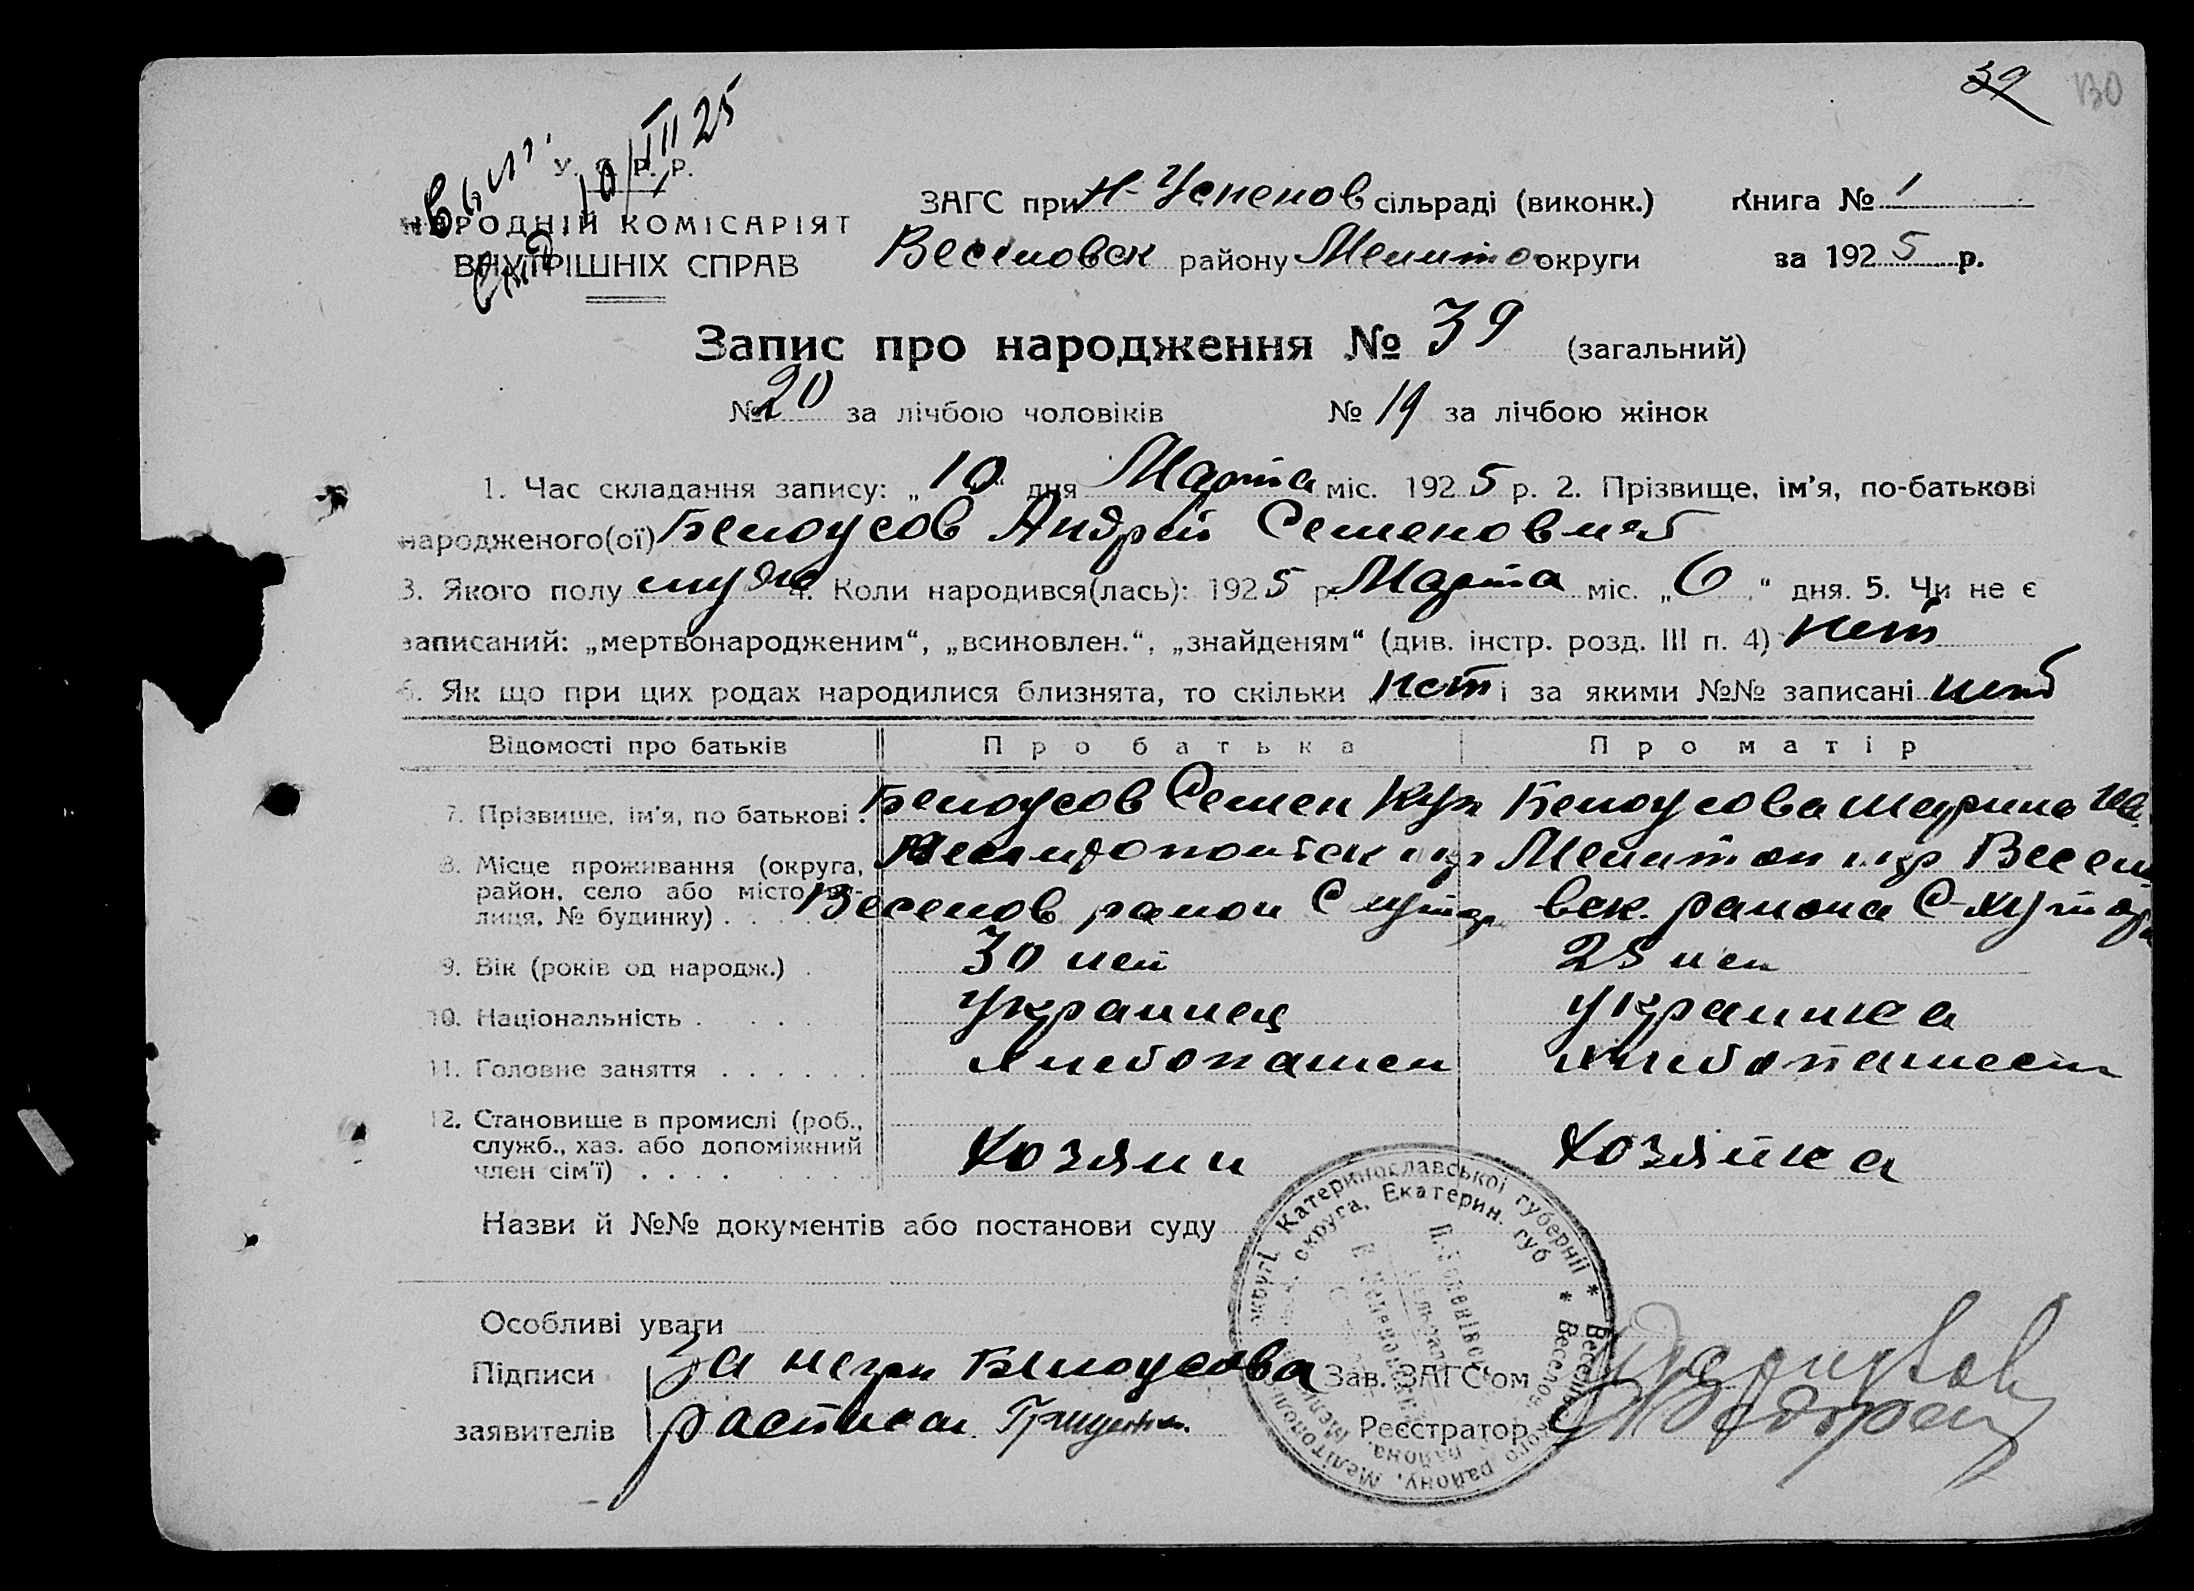 39 130
Вып.
10/III 25
У. С. Р. Р.
НАРОДНІЙ КОМІСАРІЯТ
ВНУТРІШНІХ СПРАВ
ЗАГС при Н-Успенов сільраді (виконк.) Книга № 1
Веселовск району Мелито округи за 1925 р.
Запис про народження № 39 (загальний)
№ 20 за лічбою чоловіків № 19 за лічбою жінок
1. Час складання запису: „10" дня Марта міс. 1925 р. 2. Прізвище, ім'я, по-батькові
народженого(ої) Белоусов Андрей Семенович
3. Якого полу муж 4. Коли народився(лась): 1925 р. Марта міс. „6" дня. 5. Чи не є
записаний: „мертвонародженим", „всиновлен.", „знайденям" (див. інстр. розд. III п. 4) нет
6. Як що при цих родах народилися близнята, то скільки нет і за якими №№ записані нет
Відомості про батьків Про батька Про матір
7. Прізвище, ім'я, по батькові. Белоусов Семен Куз Белоусова Марина Ив.
8. Місце проживання (округа, район, село або місто, вулиця, № будинку) . Мелитоп окр Весел
Веселов район С хутор вск. района С-хутор
9. Вік (років од народж.) . 30 лет 25 лет
10. Національність . . . . Украинец Украинка
11. Головне заняття . . . . . . хлебопашец хлебопашест
12. Становище в промислі (роб.,
служб., хаз. або допоміжний
член сім'ї) . . . . Хозяин Хозяйка
Назви й №№ документів або постанови суду
Особливі уваги
Підписи За негр Белоусова Зав. ЗАГС'ом
заявителів расписал Гриценко Реєстратор
округі Катеринославської губернії * Веселівського району, Мелітополь
округа, Екатерин. губ * Веселов района, Мелитопол